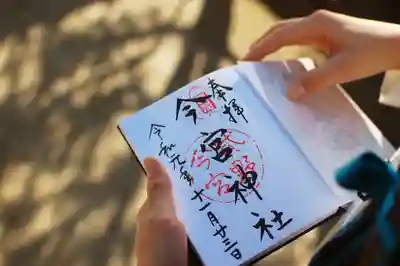 奉拝
今宮神社
令和元年十一月廿三日